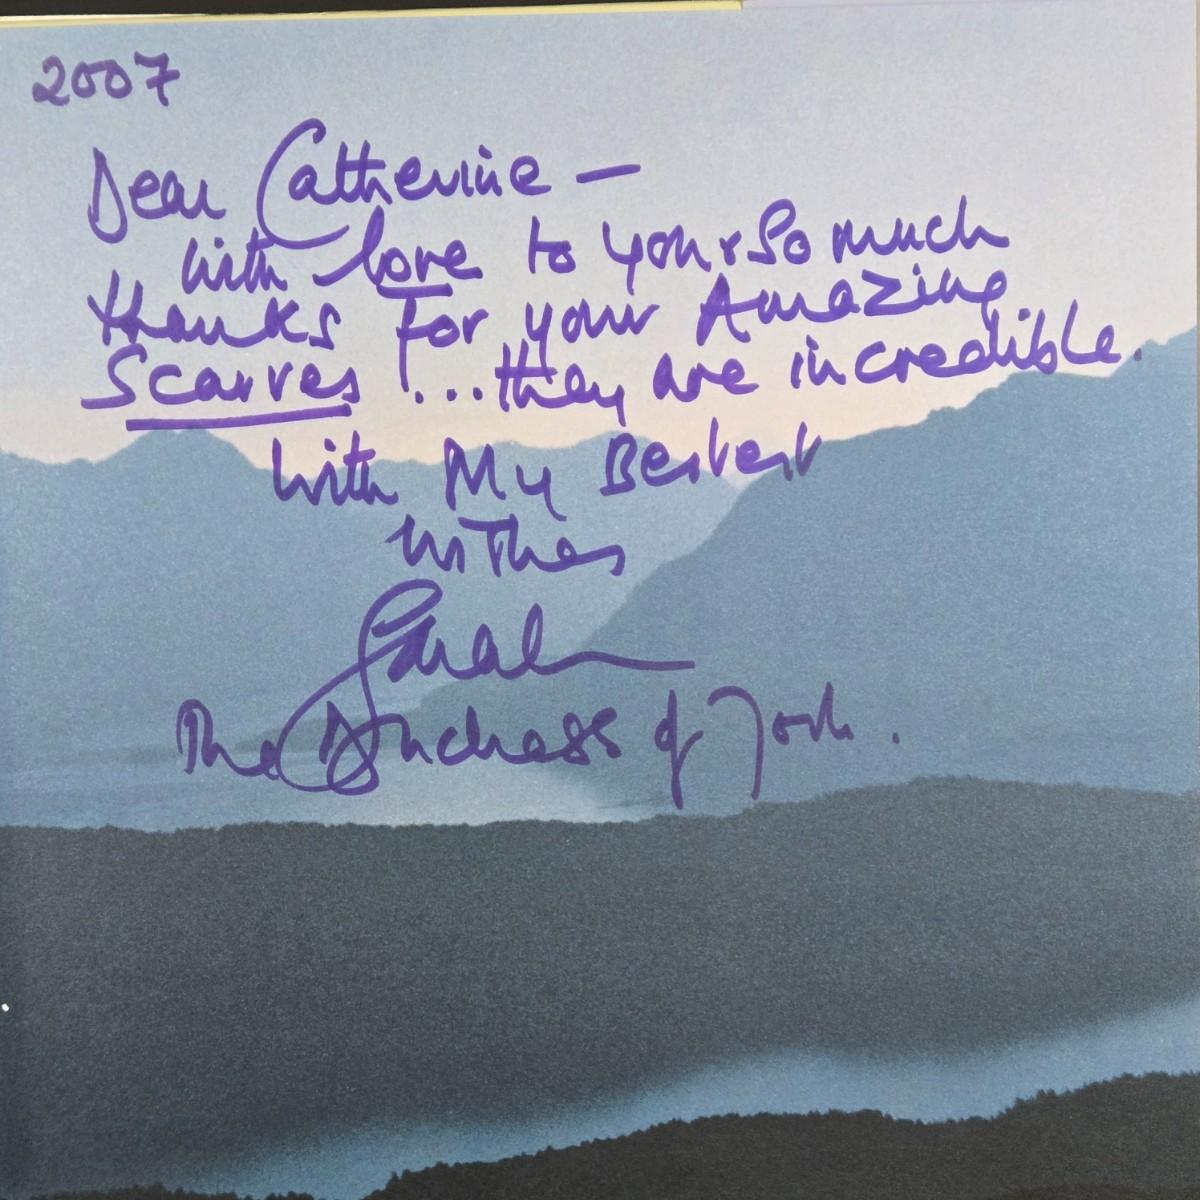 2007
Dear Catherine —
with love to you & so much
thanks for your Amazing
Scarves !...they are incredible.
With My Bestest
wishes
Sarah
The Duchess of York.